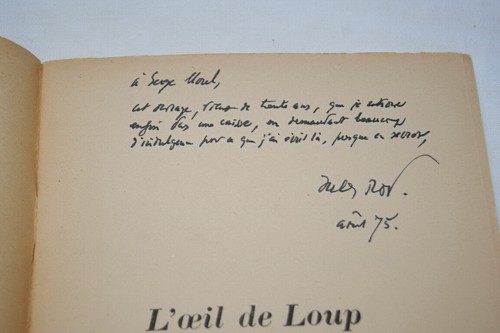 à Serge Morel,
cet ouvrage, vieux de trente ans, que je retrouve
enfin dans une caisse, en demandant beaucoup
d'indulgence pour ce que j'ai écrit là, presque en secret,
Jules Roy.
août 75.
L'œil de Loup